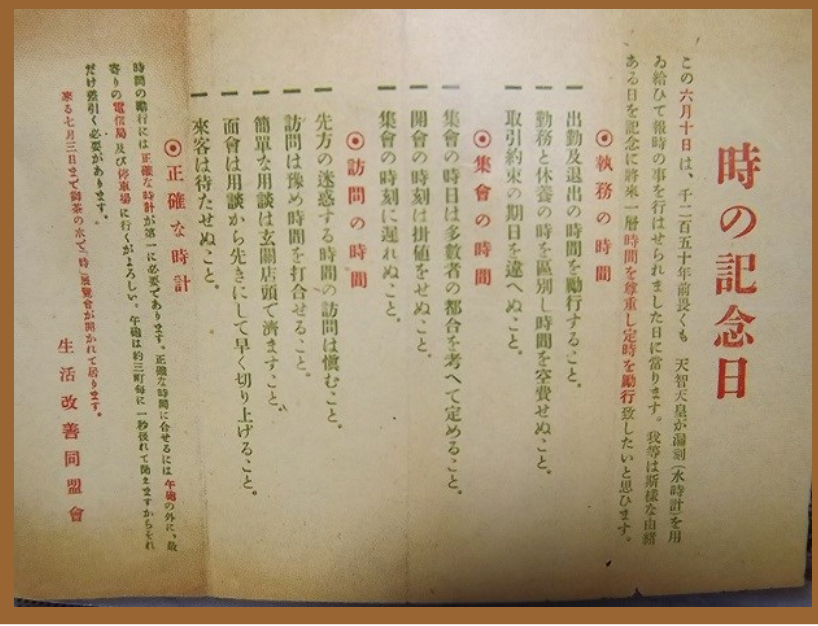 時の記念日
この六月十日は、千二百五十年前畏くも　天智天皇が漏刻（水時計）を用
ゐ給ひて報時の事を行はせられました日に當ります。我等は斯様な由緒
ある日を記念に將來一層時間を尊重し定時を勵行致したいと思ひます。
◉執務の時間
一　出勤及退出の時間を勵行すること。
一　勤務と休養の時を區別し時間を空費せぬこと。
一　取引約束の期日を違へぬこと。
◉集會の時間
一　集會の時日は多數者の都合を考へて定めること。
一　開會の時刻は掛値をせぬこと。
一　集會の時刻に遲れぬこと。
◉訪問の時間
一　先方の迷惑する時間の訪問は愼むこと。
一　訪問は豫め時間を打合せること。
一　簡單な用談は玄關店頭で濟ますこと。
一　面會は用談から先きにして早く切り上げること。
一　來客は待たせぬこと。
◉正確な時計
時間の勵行には正確な時計が第一に必要であります。正確な時間に合せるには午砲の外に、最
寄りの電信局及び停車場に行くがよろしい。午砲は約三町每に一秒後れて聞えますからそれ
だけ差引く必要があります。
來る七月三日まで御茶の水で「時」展覽會が開かれて居ります。
生活改善同盟會